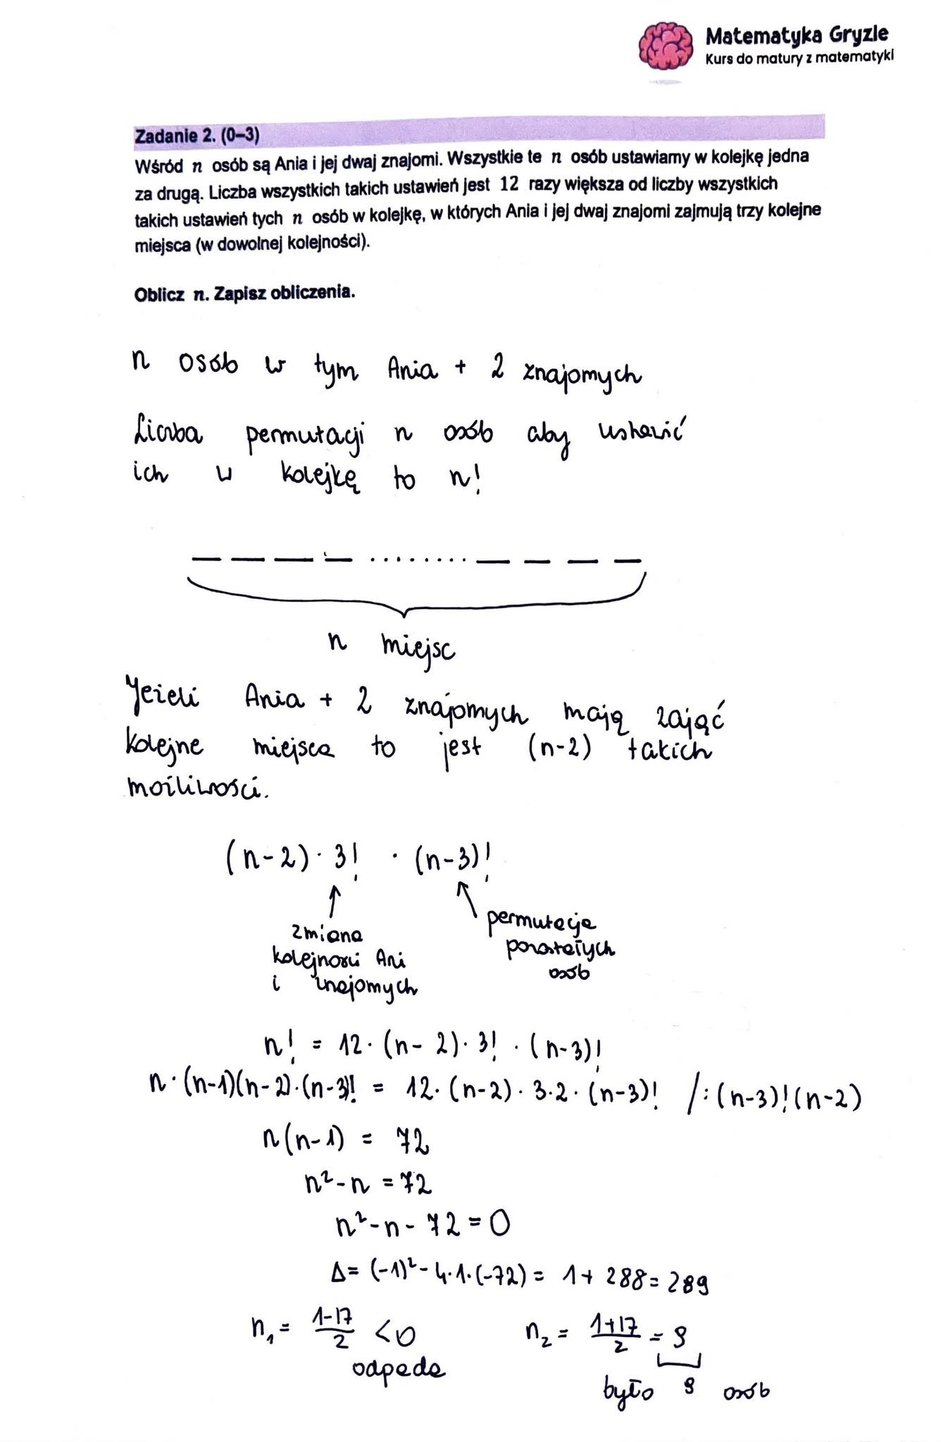 Matematyka Gryzie
Kurs do matury z matematyki
Zadanie 2. (0–3)
Wśród n osób są Ania i jej dwaj znajomi. Wszystkie te n osób ustawiamy w kolejkę jedna
za drugą. Liczba wszystkich takich ustawień jest 12 razy większa od liczby wszystkich
takich ustawień tych n osób w kolejkę, w których Ania i jej dwaj znajomi zajmują trzy kolejne
miejsca (w dowolnej kolejności).
Oblicz n. Zapisz obliczenia.
n osób w tym Ania + 2 znajomych
Liczba permutacji n osób aby ustawić
ich w kolejkę to n!
n miejsc
Jeżeli Ania + 2 znajomych mają zająć
kolejne miejsca to jest (n-2) takich
możliwości.
(n-2) · 3! · (n-3)!
zmiana
kolejności Ani
i znajomych
permutacje
pozostałych
osób
n! = 12 · (n-2) · 3! · (n-3)!
n · (n-1)(n-2) · (n-3)! = 12 · (n-2) · 3·2 · (n-3)! /:(n-3)!(n-2)
n(n-1) = 72
n²-n = 72
n²-n-72=0
Δ= (-1)²-4·1·(-72) = 1+288=289
n₁ = (1-17)/2 <0
odpada
n₂ = (1+17)/2 = 9
było 9 osób